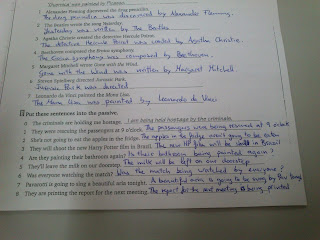 1 Alexander Fleming discovered the drug penicillin.
The drug penicillin was discovered by Alexander Fleming.
2 The Beatles wrote the song Yesterday.
Yesterday was written by The Beatles
3 Agatha Christie created the detective Hercule Poirot.
The detective Hercule Poirot was created by Agatha Christie.
4 Beethoven composed the Eroica symphony.
The Eroica symphony was composed by Beethoven.
5 Margaret Mitchell wrote Gone with the Wind.
Gone with the Wind was written by Margaret Mitchell.
6 Steven Spielberg directed Jurassic Park.
Jurassic Park was directed
7 Leonardo da Vinci painted the Mona Lisa.
The Mona Lisa was painted by Leonardo da Vinci
Put these sentences into the passive.
0 The criminals are holding me hostage. I am being held hostage by the criminals.
1 They were rescuing the passengers at 9 o'clock. The passengers were being rescued at 9 o'clock
2 She's not going to eat the apples in the fridge. The apples in the fridge aren't going to be eaten
3 They will shoot the new Harry Potter film in Brazil. The new HP film will be in Brazil
4 Are they painting their bathroom again? Is their bathroom being painted again?
5 They'll leave the milk on our doorstep. The milk will be left on our doorstep
6 Was everyone watching the match? Was the match being watched by everyone?
7 Pavarotti is going to sing a beautiful aria tonight. A beautiful aria is going to be sung by
8 They are printing the report for the next meeting. The report for the next meeting is being printed